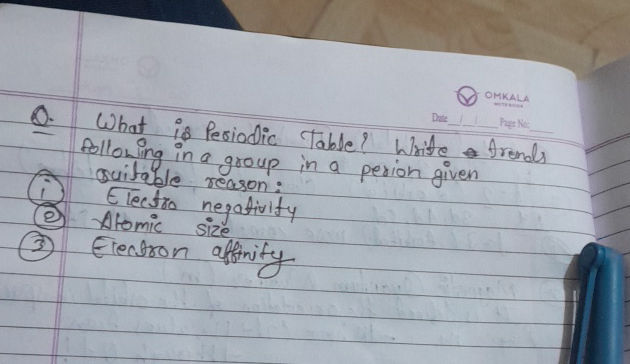 OMKALA
Date / / Page No:
Q. What is Periodic Table? Write trends
following in a group in a perion given
suitable reason:
① Electro negativity
② Atomic size
③ Electron affinity